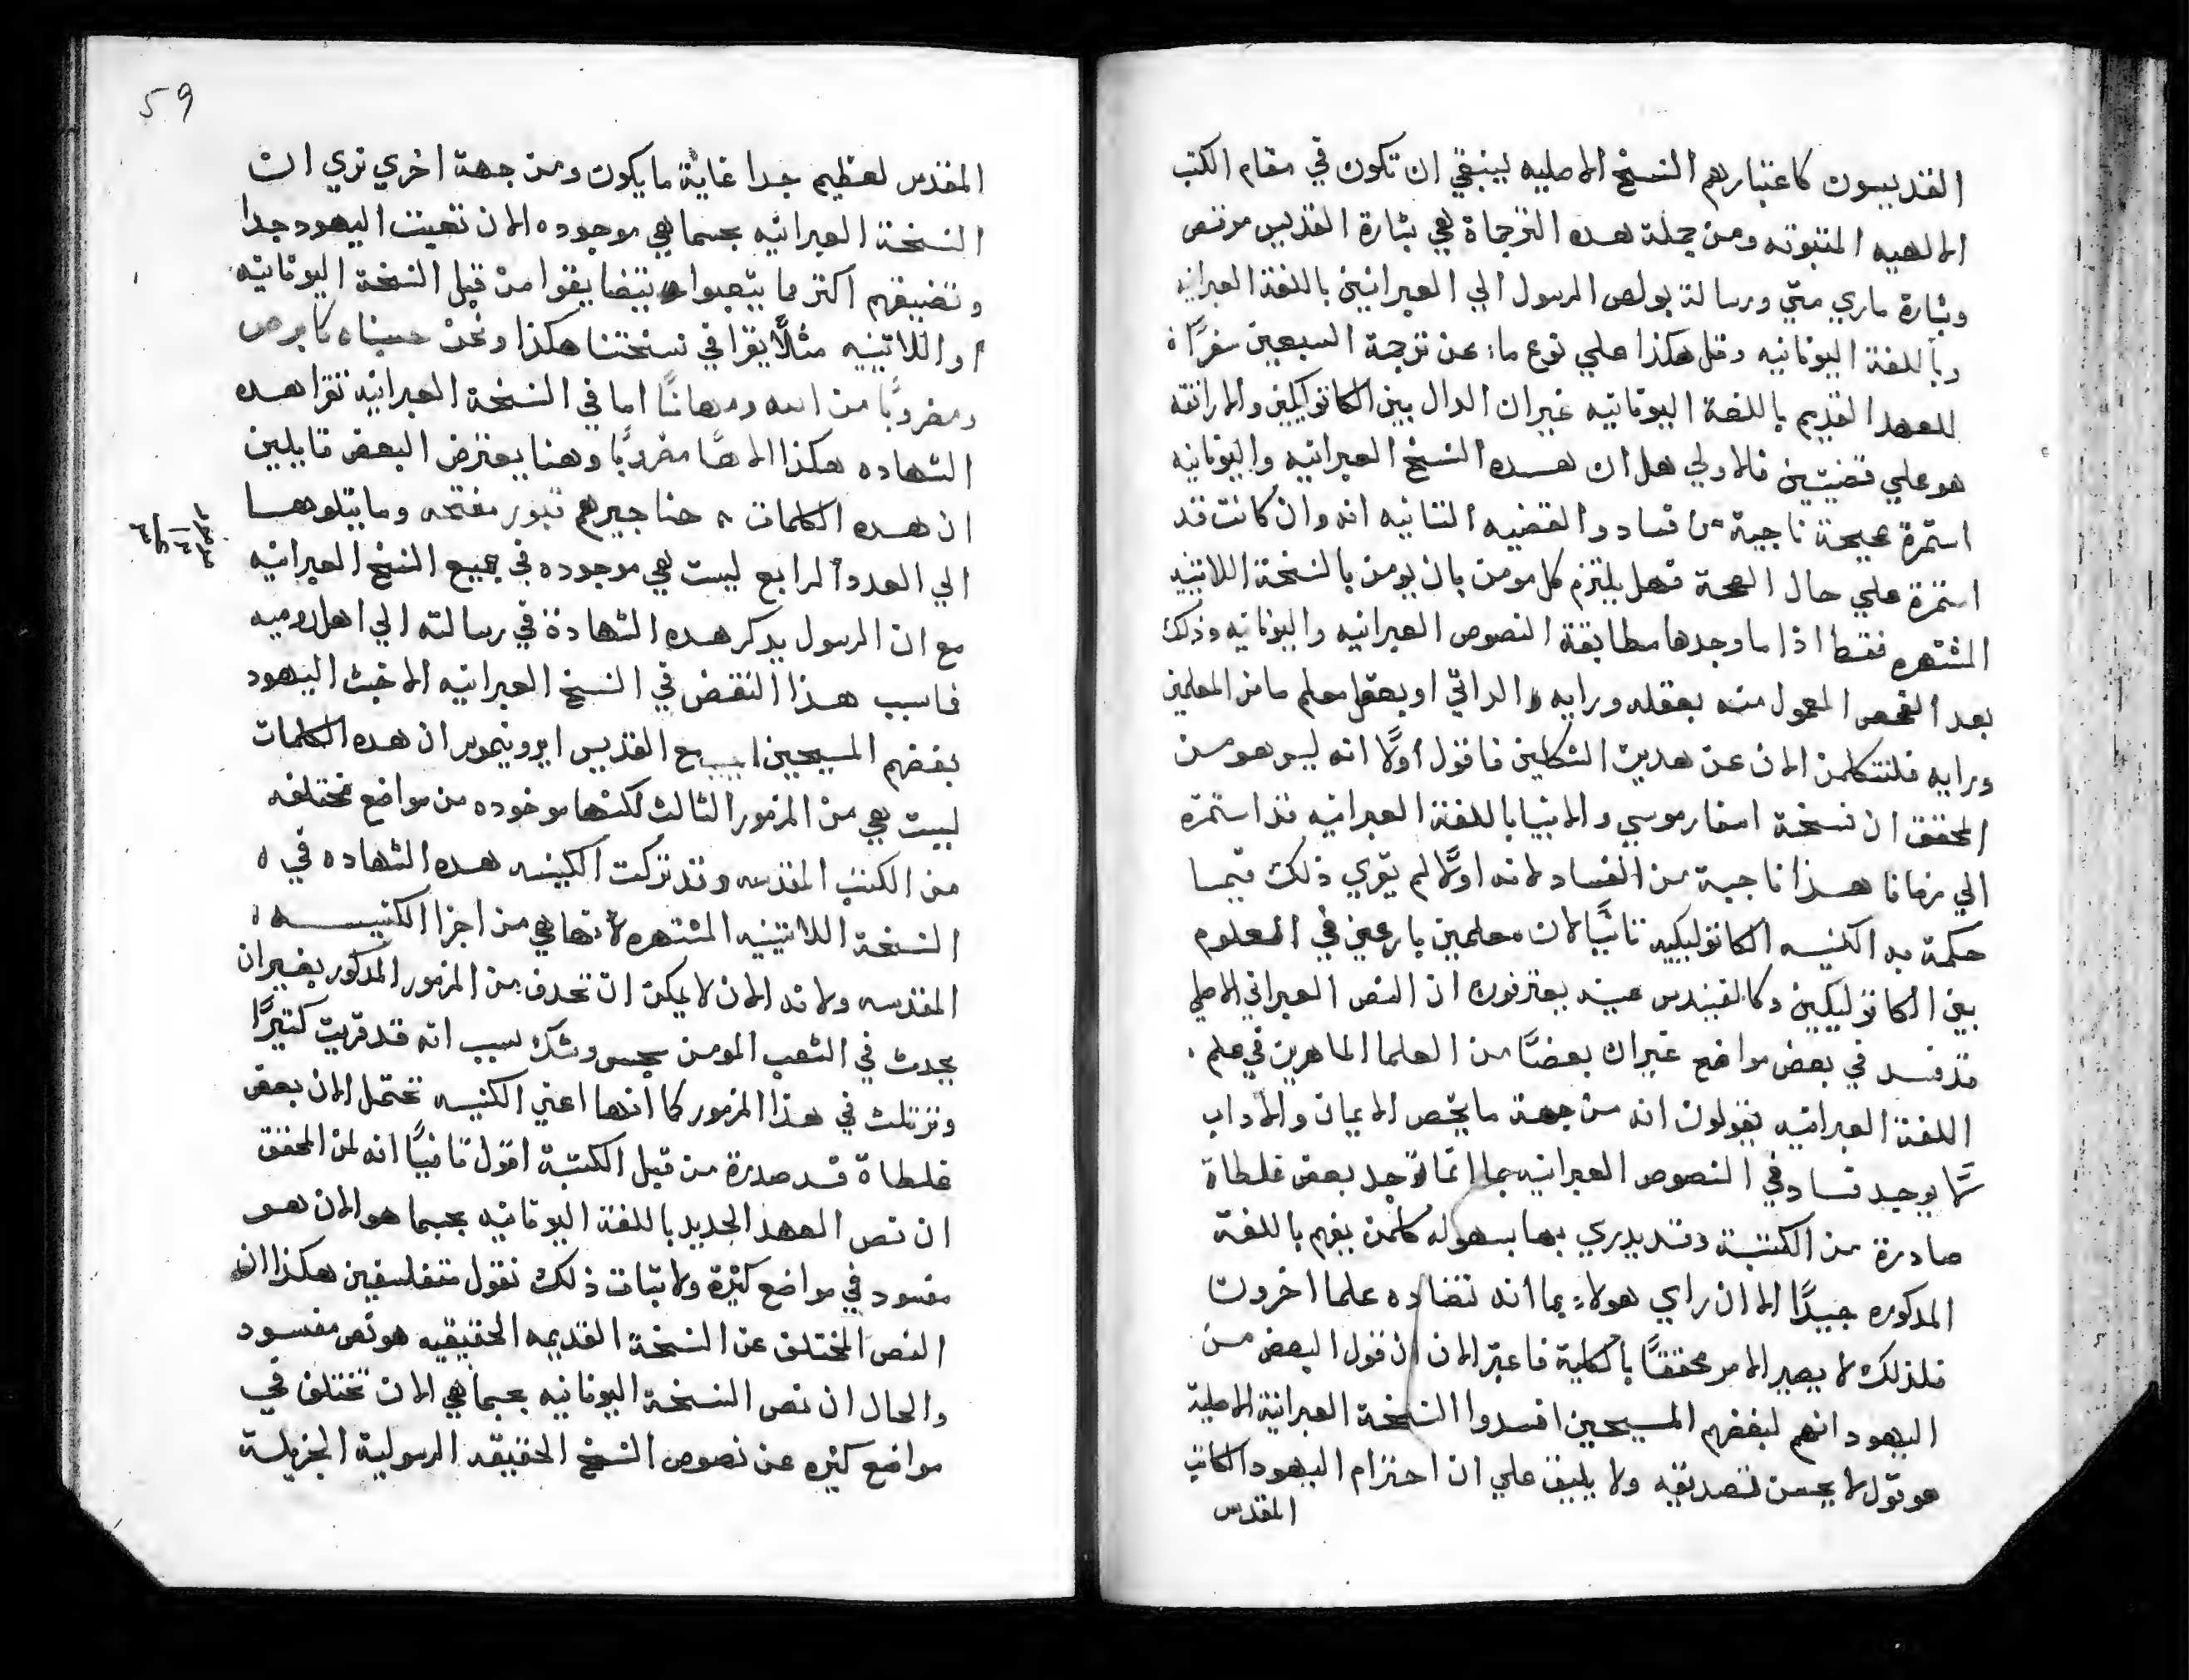 القديسون كاعتبارهم النسخ الاصليه ينبغي ان تكون في مقام الكتب
الالهيه المثبوته ومن جملة هده الترجماة هي بشارة القديس مرقص
وبشارة ماري متي ورسالة بولص الرسول الي العبرانيين باللغة العبرانيه
وباللغة اليونانيه وقل هكذا علي نوع ما عن ترجمة السبعين سفرًا
للعهد القديم باللغة اليونانيه غيران الدال بين الكاتوليكيين والاراتقه
هو علي قضيتين فالاولي هل ان هده النسخ العبرانيه واليونانيه
استمرة صحيحة ناجية من فساد والقضيه التانيه انه وان كانت قد
استمرة علي حال الصحة فهل يلتزم كل مومن بان يومن بالنسخة اللاتينيه
المشتهره فقط اذا ما وجدها مطابقة النصوص العبرانيه واليونانيه وذلك
بعد الفحص المعمول منه بعقله ورايه الداتي او بعقل معلم ما من المعلمين
ورايه فلنتكلمن الان عن هدين الشكلين فاقول اولًا انه ليس هو من
المحقق ان نسخة اسفار موسي والانبيا باللغة العبرانيه قد استمرة
الي زماننا هذا ناجية من الفساد لانه اولًا لم يوري ذلك فيما
حكمة به الكنيسه الكاتوليكيه تانيًا لان معلمين بارعين في العلوم
بين الكاتوليكيين يعترفون ان النص العبراني الاصلي
قد فسد في بعض مواضع غيران بعضًا من العلما الماهرين في علم
اللغة العبرانيه يقولون انه من جهة ما يخص الايمان والاداب
لا يوجد فساد في النصوص العبرانيه انما توجد بعض غلطاة
صادرة من الكتبة وقد يدري بها بسهوله كلمن يفهم باللغة
المدكوره جيدًا الا ان راي هولاء بما انه تضاده علما اخرون
فلذلك لا يصير الامر محققًا بالكلية فاعتبر الان ان قول البعض من
اليهود انهم لبغضهم المسيحيين افسدوا النسخة العبرانية الاصلية
هو قول لا يحسن تصديقه ولا يليق علي ان احترام اليهود الكتاب
المقدس
59
المقدس لعظيم جدا غاية ما يكون ومن جهة اخري نري ان
النسخة العبرانيه بحسما هي موجوده الان تعينت اليهود جدا
وتضيقهم اكتر ما يتعبوا ويتضايقوا من قبل النسخة اليونانيه
او اللاتينيه مثلًا يقرا في نسختنا هكذا ونحن حسبناه كابرص
ومضروبًا من الله ومهانًا اما في النسخة العبرانيه تقرا هده
الشهاده هكذا الاهًا مضروبًا وهنا يعترض البعض قايلين
ان هده الكلمات حناجيرهم قبور مفتحه وما يتلوها
الي العدد الرابع ليست هي موجوده في جميع النسخ العبرانيه
مزمور
مع ان الرسول يدكر هده الشهادة في رسالته الي اهل روميه
فما سبب هذا النقض في النسخ العبرانيه الا خبث اليهود
بغضهم المسيحيين القديس ايرونيموس ان هده الكلمات
ليست هي من المزمور الثالث لكنها موخوده من مواضع مختلفه
من الكتب المقدسه وقد تركت الكنيسه هده الشهاده في
النسخة اللاتينيه المشتهره لانها هي من اجزا الكنيسه
المقدسه ولانه الان لا يمكن ان تحدف من المزمور المدكور بغيران
يحدث في الشعب المومن سجس وشك بسبب انه قد قريت كتيرًا
وترتلت في هذا المزمور كما انها اعني الكنيسه تحتمل الان بعض
غلطاة قد صدرة من قبل الكتبة اقول تانيًا انه لمن المحقق
ان نص العهد الجديد باللغة اليونانيه بحسما هو الان هو
مفسود في مواضع كثيرة ولاتبات ذلك نقول متفلسفين هكذا ان
النص المختلف عن النسخة القديمه الحقيقيه هو نص مفسود
والحال ان نص النسخة اليونانيه بحسما هي الان تختلف في
مواضع كثيره عن نصوص النسخ الحقيقه الرسولية الجزيلة